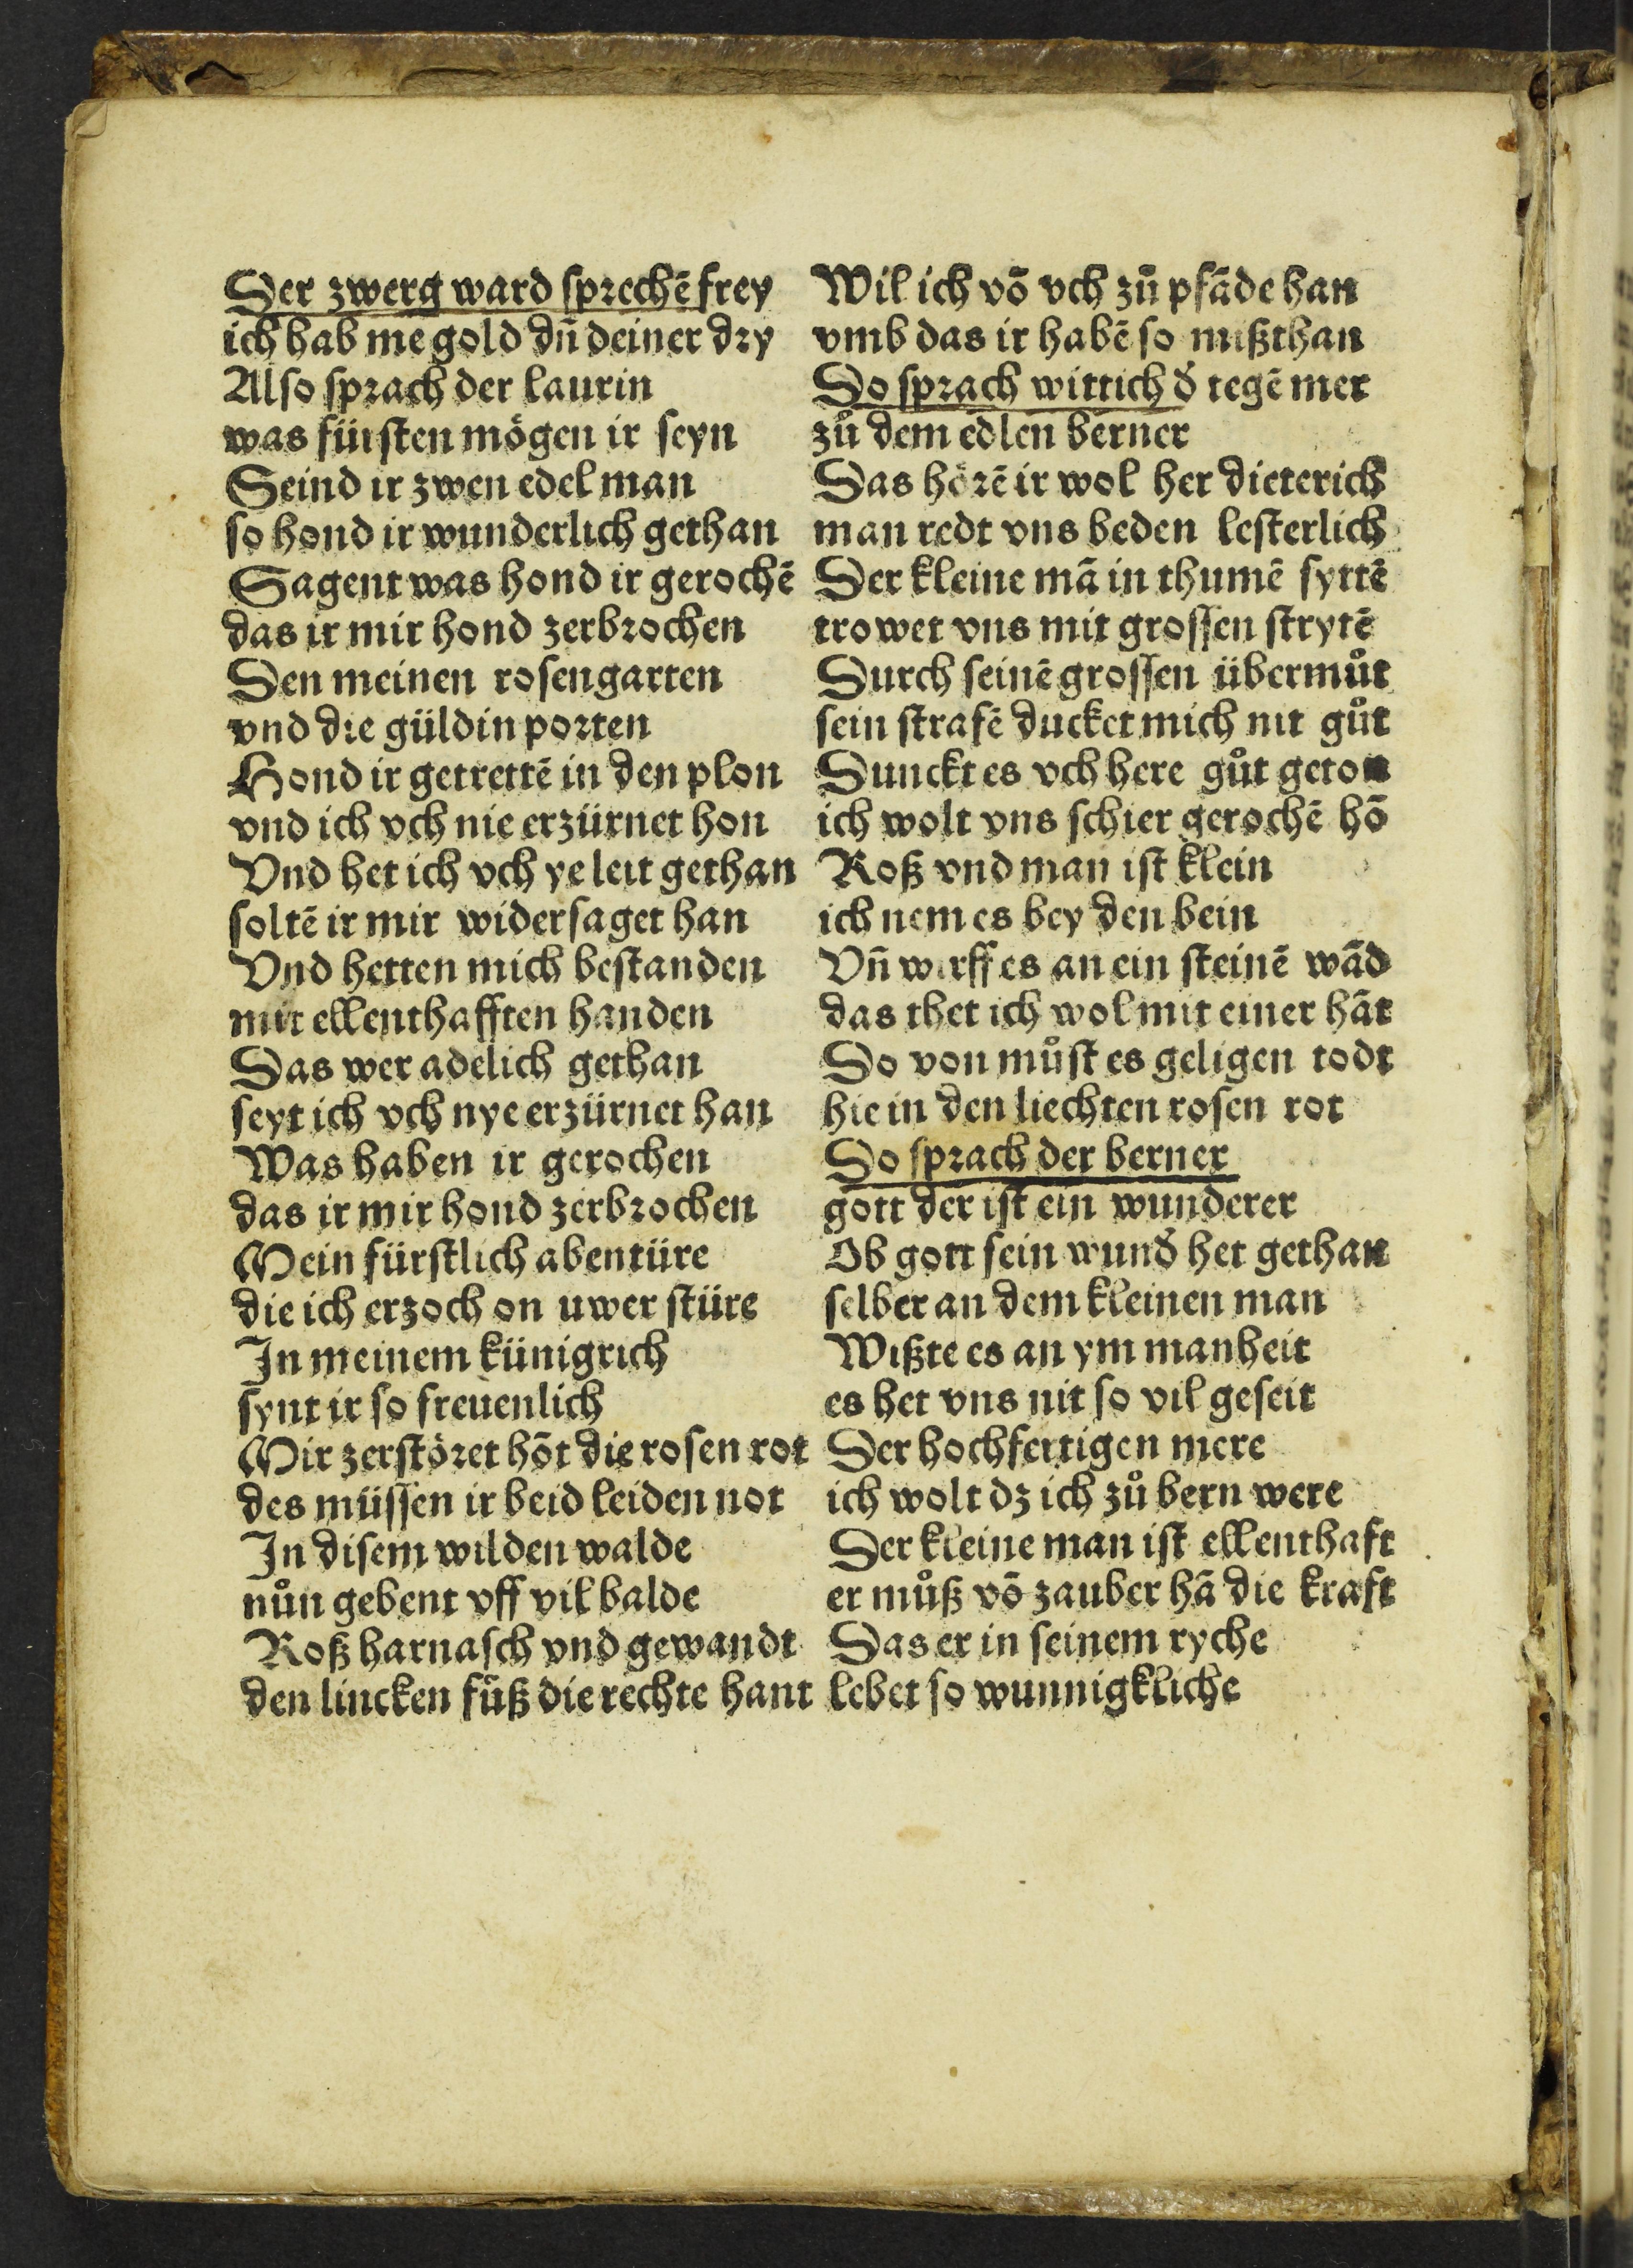 Der zwerg ward sprechē frey
ich hab me gold dñ deiner dry
Also sprach der laurin
was fürsten mögen ir seyn
Seind ir zwen edel man
so hond ir wunderlich gethan
Sagent was hond ir gerochē
das ir mir hond zerbrochen
Den meinen rosengarten
vnd die güldin porten
Hond ir getrettē in den plon
vnd ich vch nie erzürnet hon
Vnd het ich vch ye leit gethan
soltē ir mir widersaget han
Vnd hetten mich bestanden
mit ellenthafften handen
Das wer adelich gethan
seyt ich vch nye erzürnet han
Was haben ir gerochen
das ir mir hond zerbrochen
Mein fürstlich abentüre
die ich erzoch on uwer stüre
In meinem künigrich
synt ir so freuenlich
Mir zerstöret hōt die rosen rot
des müssen ir beid leiden not
In disem wilden walde
nůn gebent vff vil balde
Roß harnasch vnd gewandt
den lincken fůß die rechte hant
Wil ich vō vch zů pfāde han
vmb das ir habē so mißthan
Do sprach wittich ď tegē mer
zů dem edlen berner
Das hörē ir wol her dieterich
man redt vns beden lesterlich
Der kleine mā in thumē syttē
trowet vns mit grossen strytē
Durch seinē grossen übermůt
sein strafē ducket mich nit gůt
Dunckt es vch here gůt geton
ich wolt vns schier gerochē hō
Roß vnd man ist klein
ich nem es bey den bein
Vñ wirff es an ein steinē wād
das thet ich wol mit einer hāt
Do von můst es geligen todt
hie in den liechten rosen rot
Do sprach der berner
gott der ist ein wunderer
Ob gott sein wunď het gethan
selber an dem kleinen man
Wißte es an ym manheit
es het vns nit so vil geseit
Der hochfertigen mere
ich wolt dz ich zů bern were
Der kleine man ist ellenthaft
er můß vō zauber hā die kraft
Das er in seinem ryche
lebet so wunnigkliche